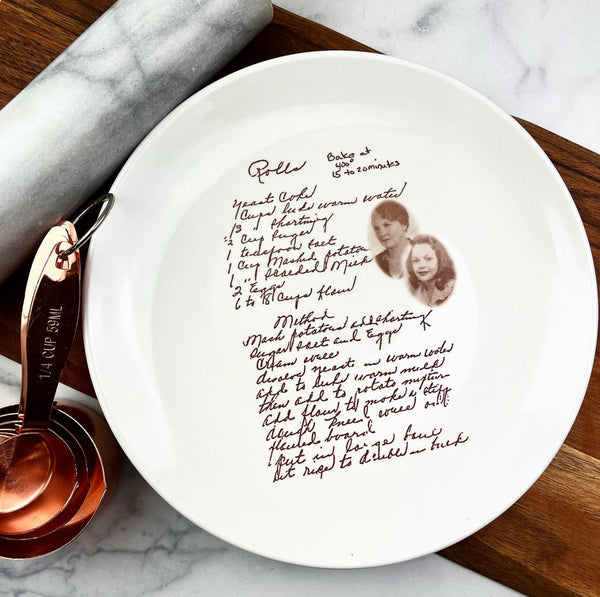 Rolls
Bake at
400°
15 to 20 minutes
1 yeast Cake
Cups luke warm water
Shortning
½ Cup Sugar
1 teaspoon salt
1 Cup Mashed potatoes
1 " Scalded Milk
2 Eggs
6 to 8 Cups flour
Method
Mash potatoes add shortning
Sugar salt and Eggs
Cream well
desolve yeast in warm water
add to luke warm milk
then add to potato mixture
add flour to make a stiff
dough Kneed well on
floured board
put in large bowl
let rise to double in bulk
1/4 CUP 59ML